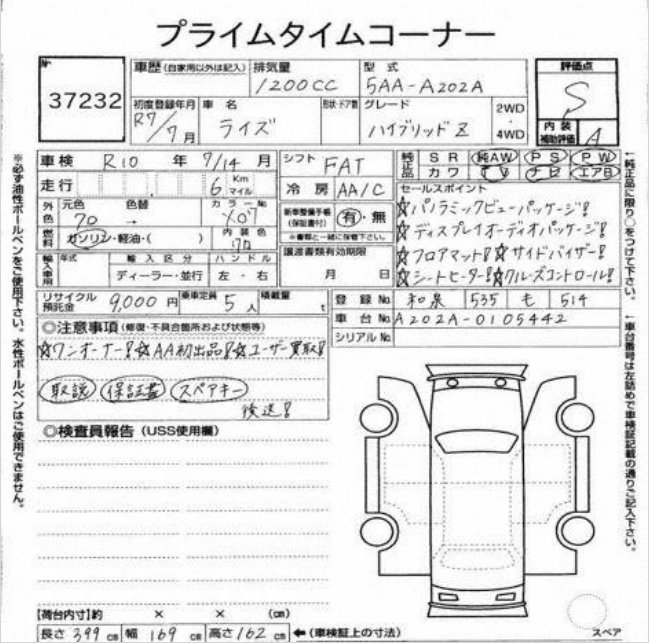 プライムタイムコーナー
No
37232
車歴 (自家用以外は記入)
排気量
1200CC
型式
5AA-A202A
評価点
S
初度登録年月
R7/7月
車名
ライズ
形状・ドア数
グレード
ハイブリッドZ
2WD
4WD
内装補助評価
A
車検 R10 年 7/14 月
シフト FAT
純正品
SR 純AW PS PW
カワ TV ナビ エアB
走行 6 Km マイル
冷房 AA/C
外色 元色 70 → 色替
カラーNo. X07
新車整備手帳 (保証書付)
有・無
※書類と一緒に保管下さい。
セールスポイント
☆パノラミックビューパッケージ!
☆ディスプレイオーディオパッケージ!
☆フロアマット!☆サイドバイザー!
☆シートヒーター!☆クルーズコントロール!
燃料 ガソリン・軽油・( )
内装色
譲渡書類有効期限
月 日
輸入車用 年式 輸入区分 ハンドル
ディーラー・並行 左・右
リサイクル預託金 9,000円
乗車定員 5人
積載量 t
登録No. 和泉 535 も 514
車台No. A202A-0105442
シリアルNo.
◎注意事項 (修復・不具合箇所および状態等)
☆ワンオーナー!☆AA初出品!☆ユーザー買取!
取説 保証書 スペアキー
後送!
◎検査員報告 (USS使用欄)
【荷台内寸】約 × × (cm)
長さ 399 cm 幅 169 cm 高さ 162 cm ←(車検証上の寸法)
スペア
※必ず油性ボールペンをご使用下さい。水性ボールペンはご使用できません。
↑純正品に限り○をつけて下さい。
↑車台番号は左詰めで車検証記載の通りご記入下さい。